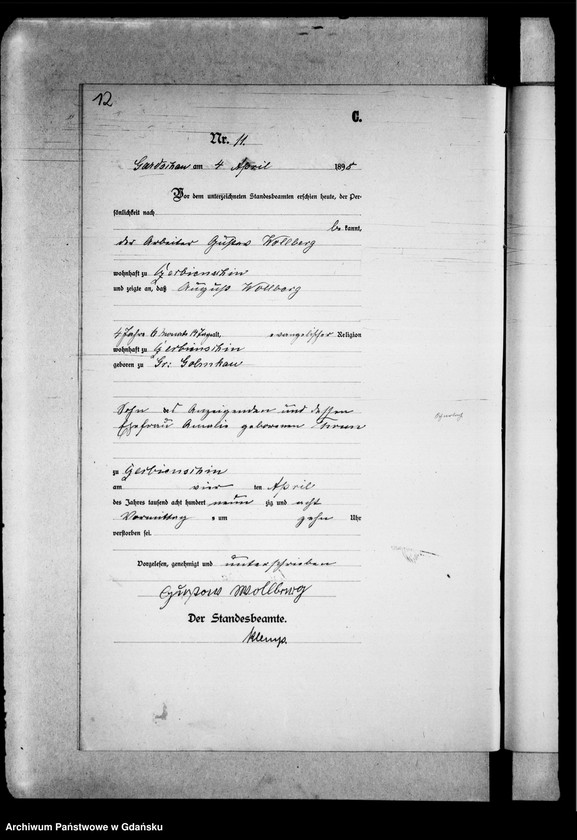 12
C.
Nr. 11.
Gardschau am 4 April 1898
Vor dem unterzeichneten Standesbeamten erschien heute, der Per-
sönlichkeit nach
be kannt,
der Arbeiter Gustav Wollberg
wohnhaft zu Gerbienschin
und zeigte an, daß August Wollberg
4 Jahre 6 Monate alt, evangelischer Religion
wohnhaft zu Gerbienschin
geboren zu Gr: Golmkau
Sohn des Anzeigenden und dessen
Ehefrau Amalie geborenen
zu Gerbienschin
am vier ten April
des Jahres tausend acht hundert neun zig und acht
Vormittag s um zehn Uhr
verstorben sei.
Vorgelesen, genehmigt und unterschrieben
Gustav Wollberg
Der Standesbeamte.
Klemp.
Archiwum Państwowe w Gdańsku